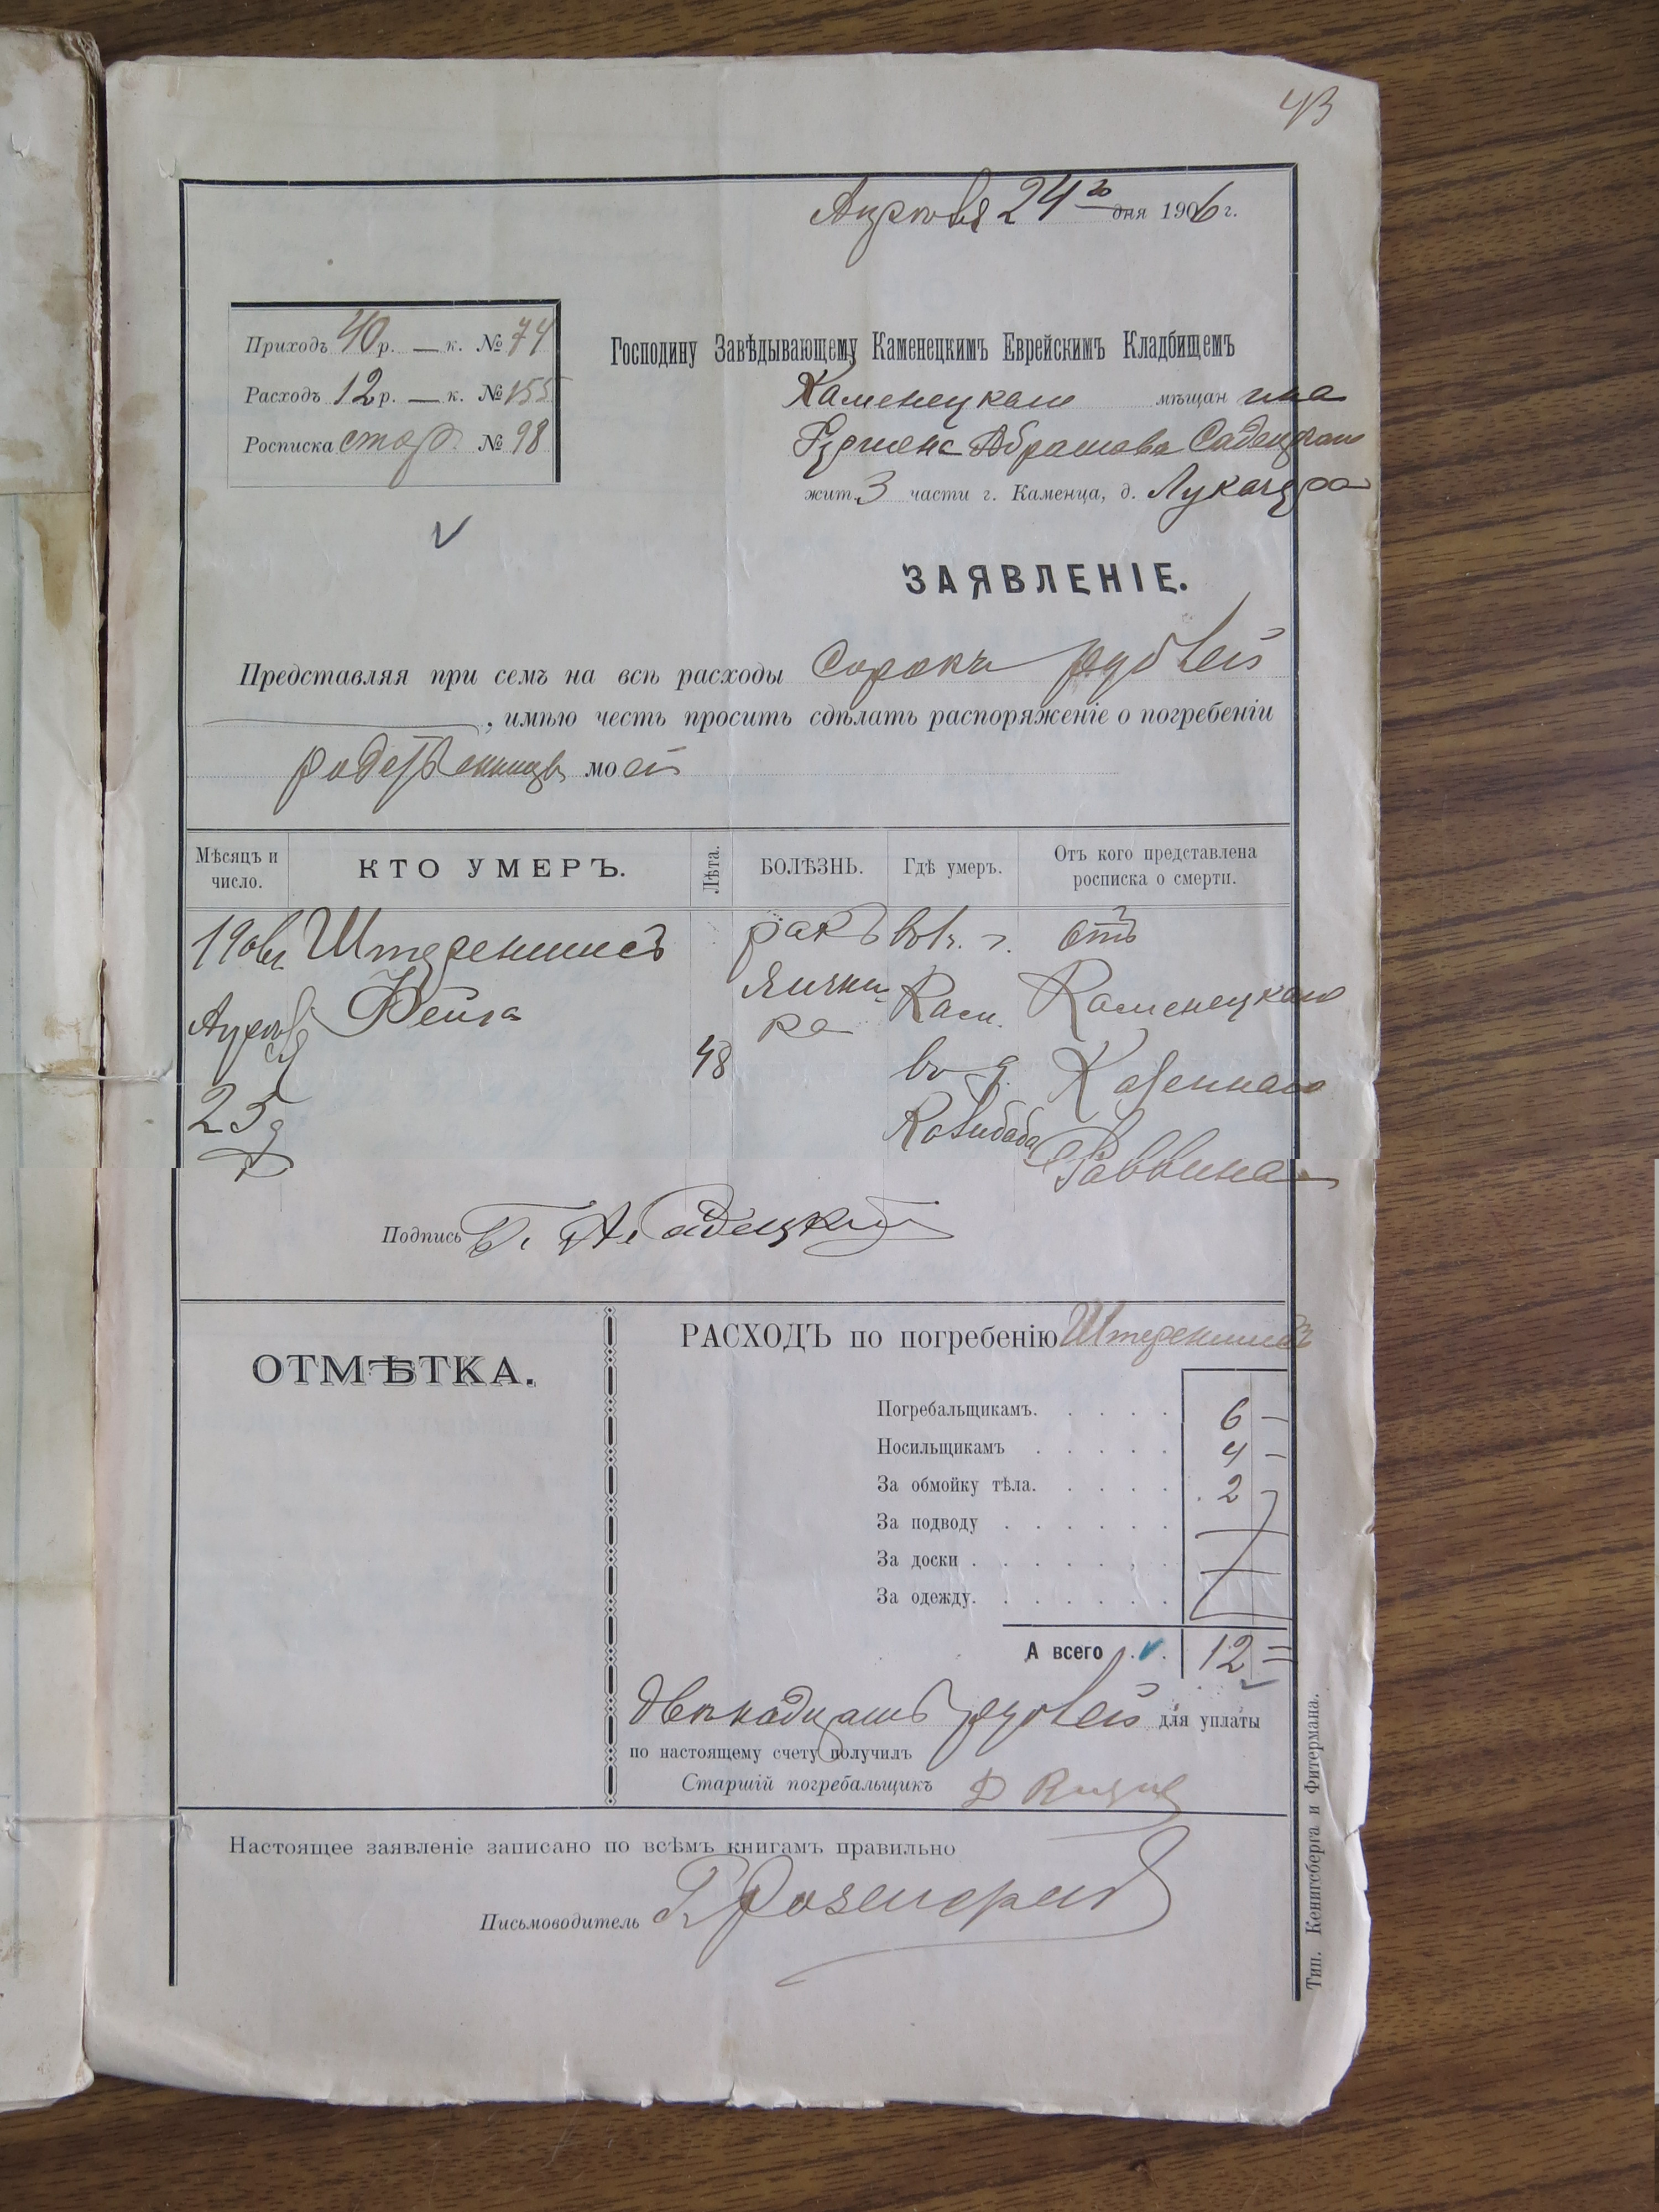 43
Апрѣля 24го дня 1906 г.
Приходъ 40 р. — к. № 74
Расходъ 12 р. — к. № 155
Росписка стор. № 98
Господину Завѣдывающему Каменецкимъ Еврейскимъ Кладбищемъ
Каменецкаго мѣщанина
Абрамова Садецкаго
жит. 3 части г. Каменца, д.
ЗАЯВЛЕНІЕ.
Представляя при семъ на всѣ расходы Сорокъ рублей
, имѣю честь просить сдѣлать распоряженіе о погребеніи
родственницы моей
Мѣсяцъ и число.
КТО УМЕРЪ.
Лѣта.
БОЛѢЗНЬ.
Гдѣ умеръ.
Отъ кого представлена росписка о смерти.
1906 г. Штереншисъ ракъ въ г. отъ
Апрѣля Фейга яични- Кам. Каменецкаго
ка
48 въ д. Казеннаго
23 д. Раввина
Подпись А. Садецкій
ОТМѢТКА.
РАСХОДЪ по погребенію Штереншисъ
Погребальщикамъ. 6 —
Носильщикамъ 4 —
За обмойку тѣла. 2 —
За подводу
За доски
За одежду.
А всего 12 =
Двѣнадцать рублей для уплаты
по настоящему счету получилъ
Старшій погребальщикъ
Настоящее заявленіе записано по всѣмъ книгамъ правильно
Письмоводитель
Тип. Кенигсберга и Фитермана.